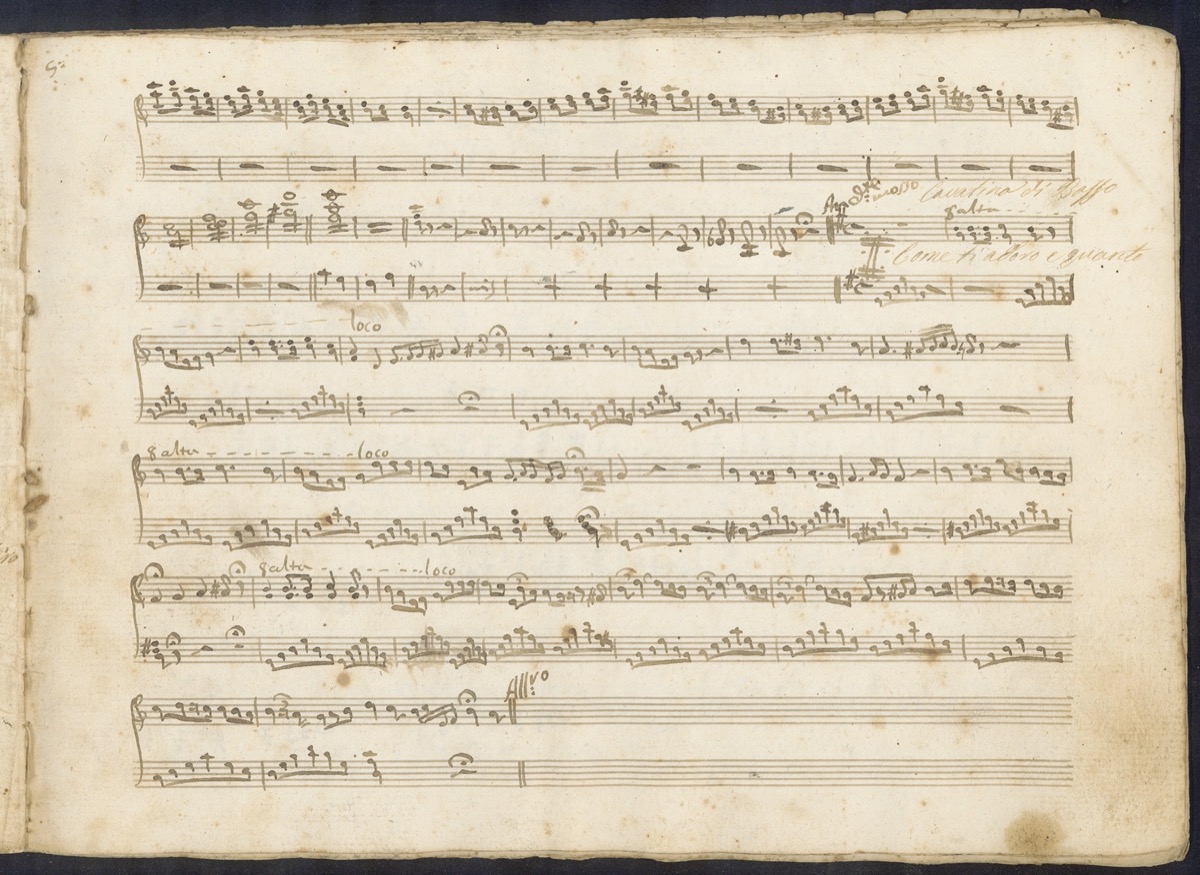 5
And.te mosso Cavatina di Basso
8 alta
Come ti adoro e quanto
loco
8 alta loco
8 alta loco
All.vo